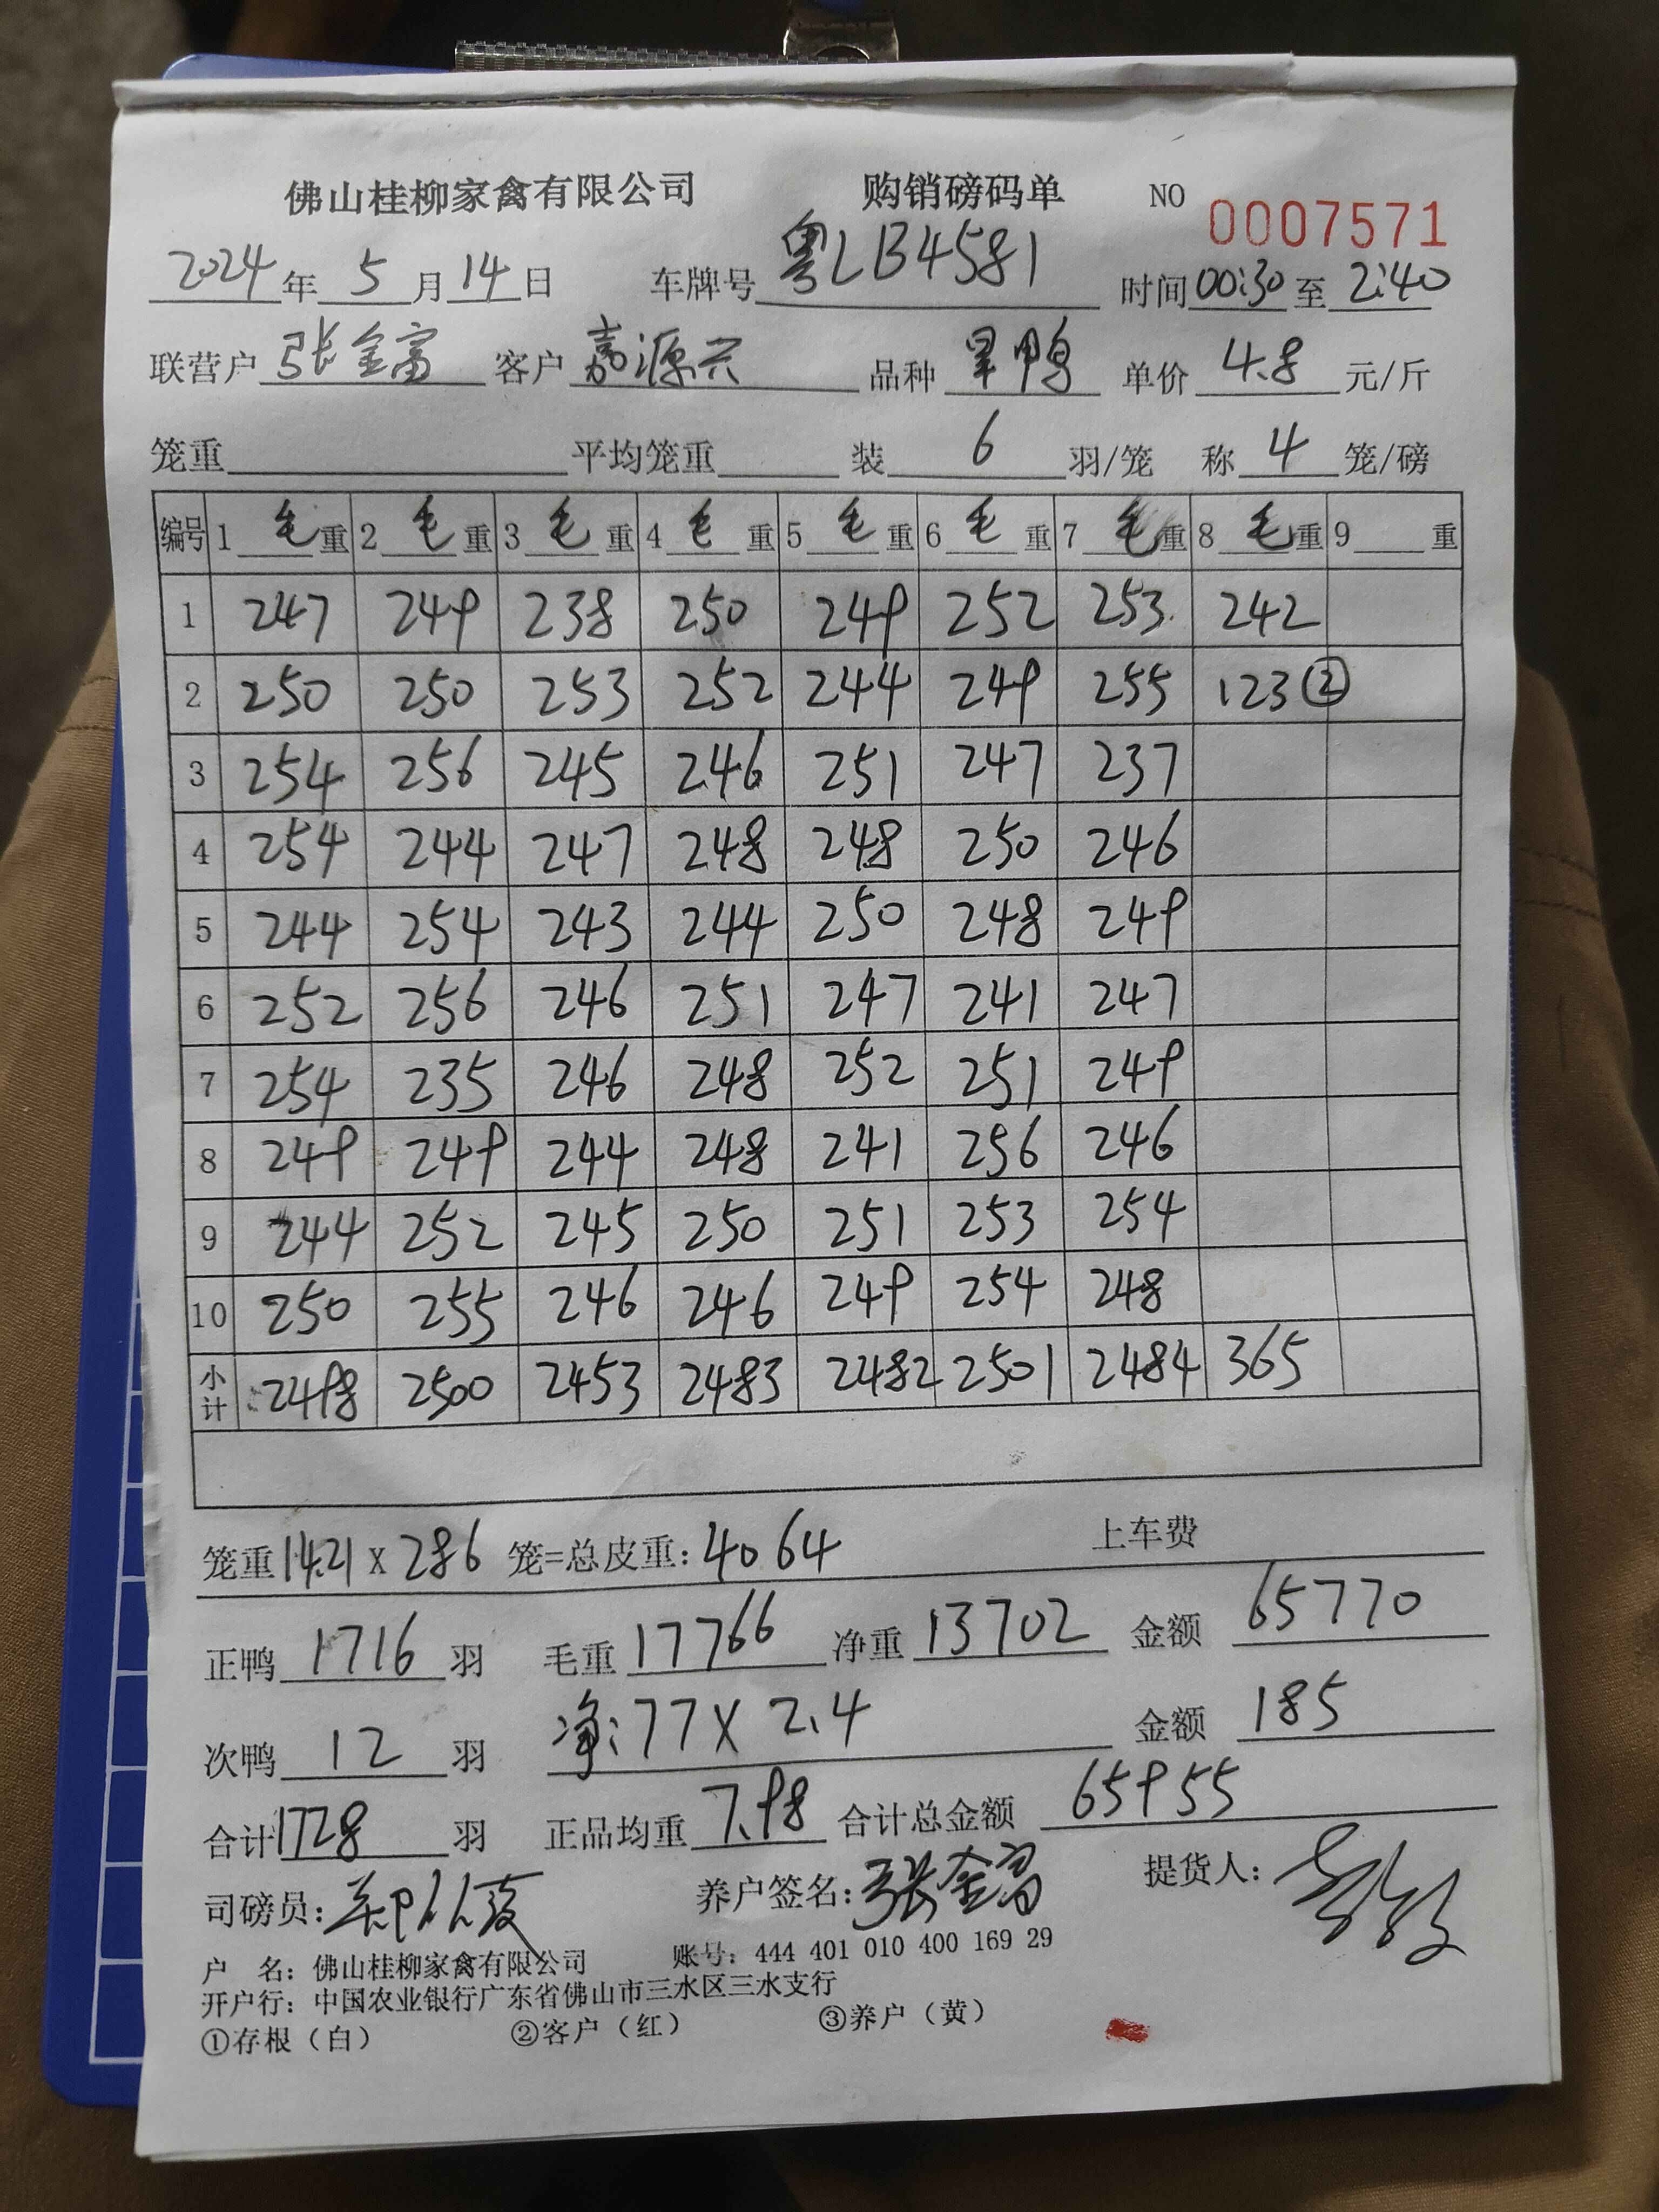 佛山桂柳家禽有限公司 购销磅码单 NO 0007571
2024年5月14日 车牌号粤LB4581 时间00:30至2:40
联营户张金富 客户嘉源兴 品种旱鸭 单价4.8元/斤
笼重 平均笼重 装6羽/笼 称4笼/磅
编号 1毛重 2毛重 3毛重 4毛重 5毛重 6毛重 7毛重 8毛重 9重
1 247 249 238 250 249 252 253 242
2 250 250 253 252 244 249 255 123②
3 254 256 245 246 251 247 237
4 254 244 247 248 248 250 246
5 244 254 243 244 250 248 249
6 252 256 246 251 247 241 247
7 254 235 246 248 252 251 249
8 249 249 244 248 241 256 246
9 244 252 245 250 251 253 254
10 250 255 246 246 249 254 248
小计 2498 2500 2453 2483 2482 2501 2484 365
笼重14.21x286笼=总皮重:4064 上车费
正鸭1716羽 毛重17766 净重13702 金额65770
次鸭12羽 净:77X2.4 金额185
合计1728羽 正品均重7.98 合计总金额65955
司磅员: 养户签名:张金富 提货人:
户 名: 佛山桂柳家禽有限公司 账号: 444 401 010 400 169 29
开户行: 中国农业银行广东省佛山市三水区三水支行
①存根（白） ②客户（红） ③养户（黄）